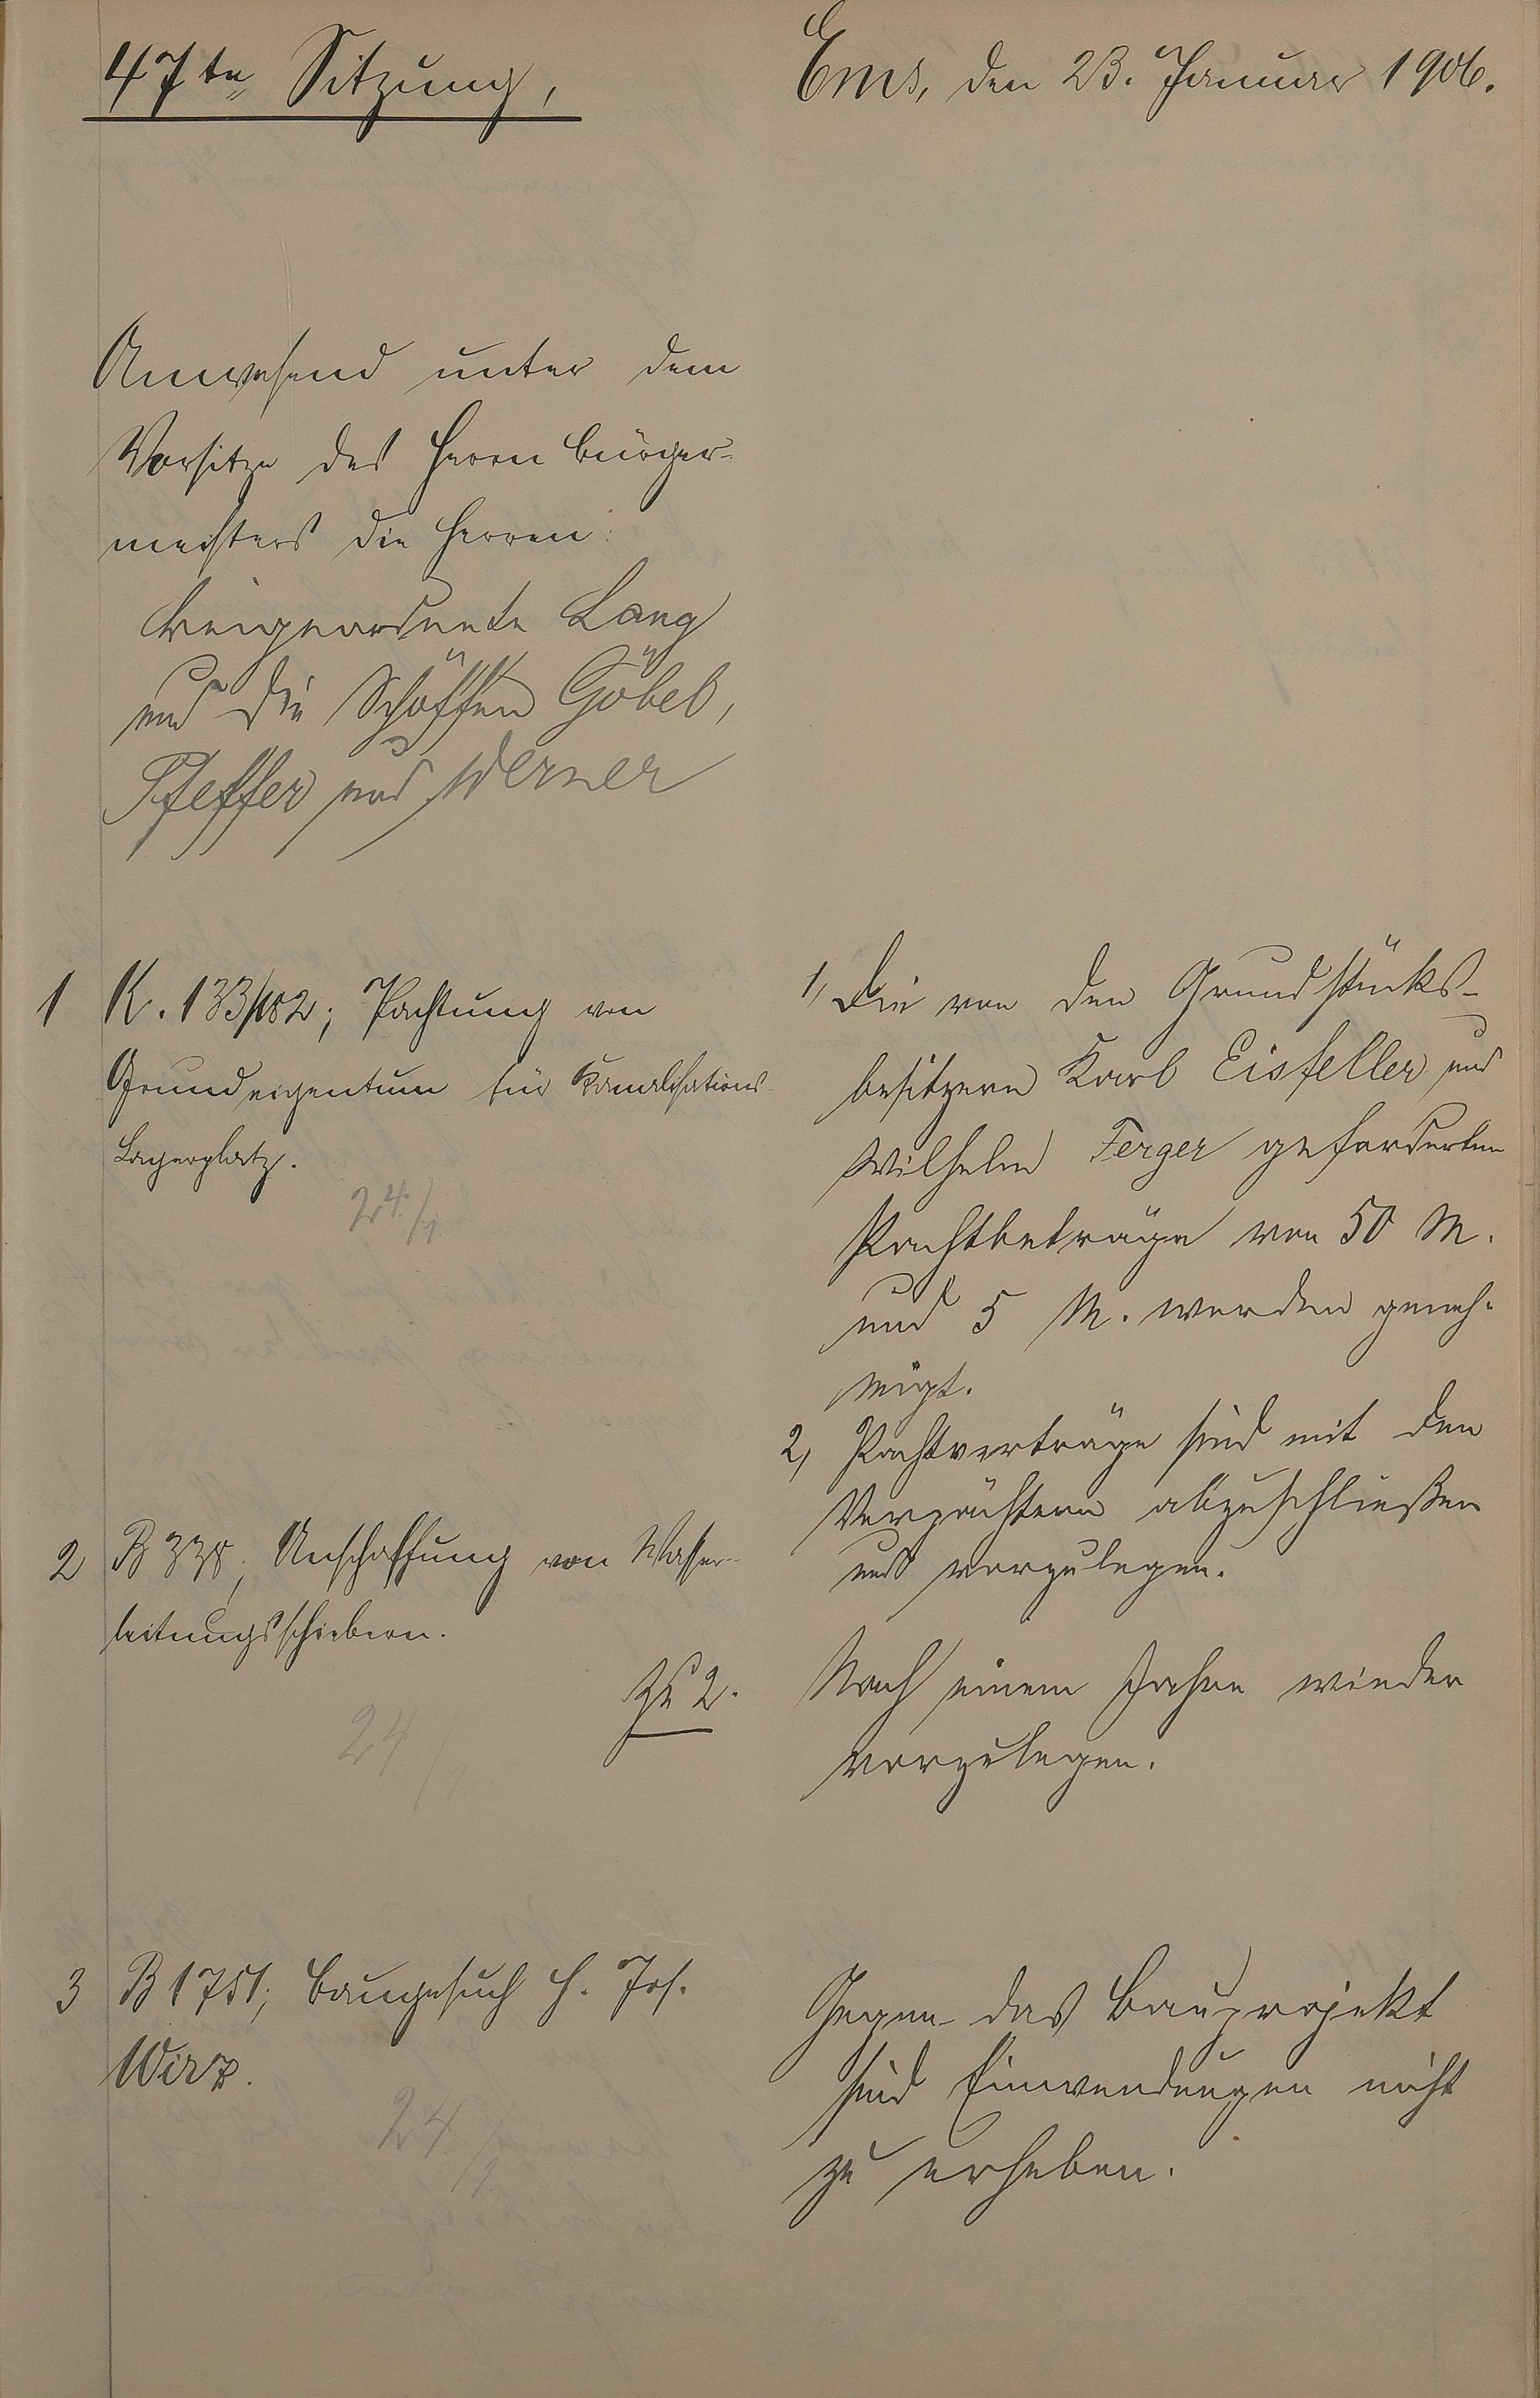 47te Sitzung,
Ems, den 23. Januar 1906.
Anwesend unter dem
Vorsitze des Herrn Bürger-
meisters die Herren:
Beigeordnete Lang
und die Schöffen Göbel,
Pfeffer und Werner
1 K. 133/182; Pachtung von
Grundeigentum für Kanalisations-
Lagerplatz.
24/1
1, Die von den Grundstücks-
besitzern Karl Eisfeller und
Wilhelm Ferger geforderten
Pachtbeträge von 50 M.
und 5 M. werden geneh-
migt.
2, Pachtverträge sind mit den
Verpächtern abzuschließen
und vorzulegen.
2 B 338; Anschaffung von Wasser-
leitungsschiebern.
24/1
Zu 2. Nach einem Jahre wieder
vorzulegen.
3 B 1751; Baugesuch H. Jos.
Wirz.
24/1
Gegen das Bauprojekt
sind Einwendungen nicht
zu erheben.